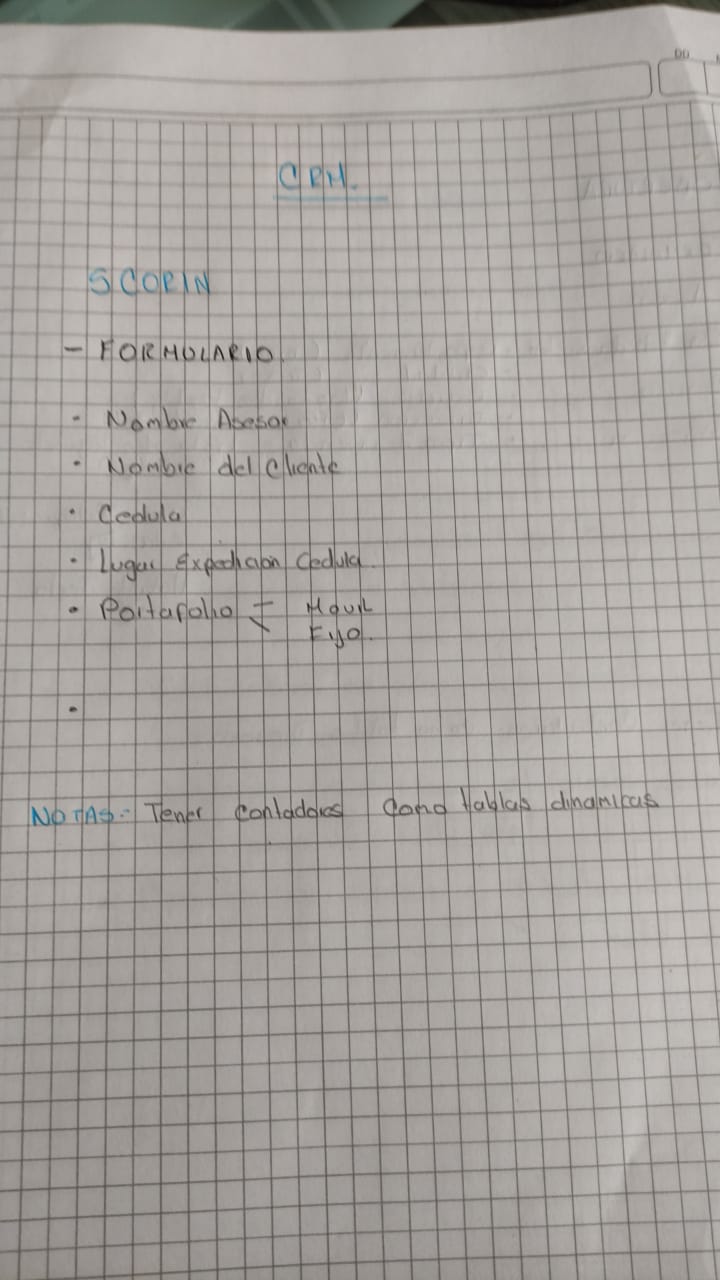 DD
CRM.
SCORIN
- FORMULARIO.
- Nombre Asesor
• Nombre del Cliente
• Cedula
• Lugar Expedicion Cedula.
• Portafolio - Movil
Fijo.
•
NOTAS:- Tener contadores como tablas dinamicas